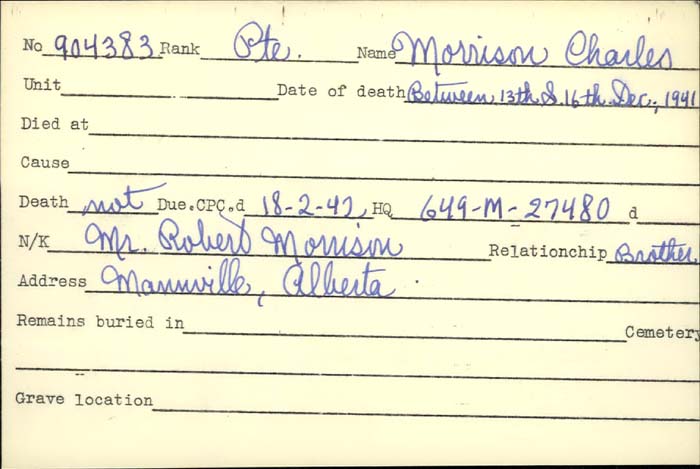 No 904383 Rank Pte. Name Morrison Charles
Unit Date of death Between 13th & 16th Dec., 1941
Died at
Cause
Death not Due.CPC.d 18-2-42 HQ 649-M-27480 d
N/K Mr. Robert Morrison Relationchip Brother
Address Mannville, Alberta
Remains buried in Cemetery
Grave location